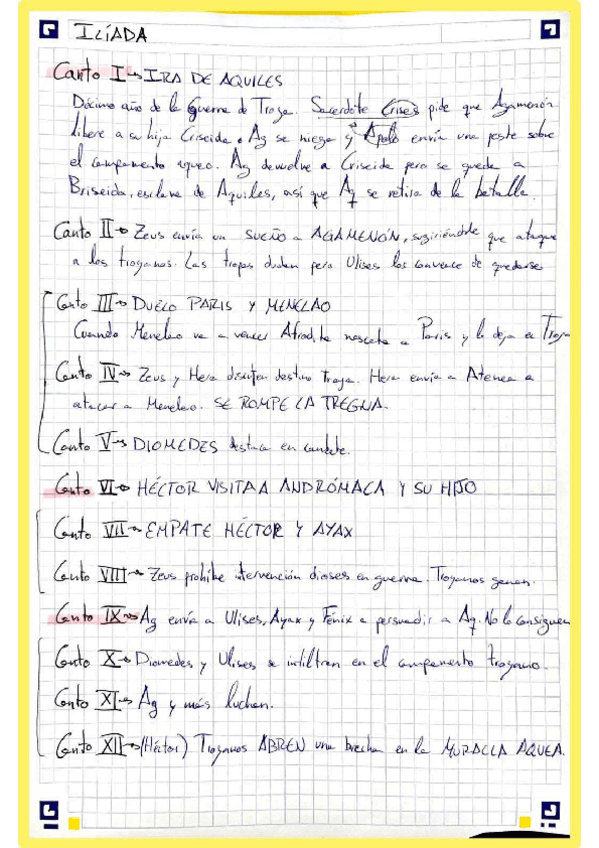 ILÍADA
Canto I → IRA DE AQUILES
Décimo año de la Guerra de Troya. Sacerdote Crises pide que Agamenón
libere a su hija Criseida. Ag se niega y Apolo envía una peste sobre
el campamento aqueo. Ag devuelve a Criseida pero se queda a
Briseida, esclava de Aquiles, así que Aq se retira de la batalla.
Canto II → Zeus envía un SUEÑO a AGAMENÓN, sugiriéndole que ataque
a los troyanos. Las tropas dudan pero Ulises los convence de quedarse
Canto III → DUELO PARIS Y MENELAO
Cuando Menelao va a vencer Afrodita rescata a Paris y lo deja en Troya
Canto IV → Zeus y Hera discuten destino Troya. Hera envía a Atenea a
atacar a Menelao. SE ROMPE LA TREGUA.
Canto V → DIOMEDES destaca en combate.
Canto VI → HÉCTOR VISITA A ANDRÓMACA Y SU HIJO
Canto VII → EMPATE HÉCTOR Y AYAX
Canto VIII → Zeus prohíbe intervención dioses en guerra. Troyanos ganan.
Canto IX → Ag envía a Ulises, Ayax y Fénix a persuadir a Aq. No lo consiguen
Canto X → Diomedes y Ulises se infiltran en el campamento troyano.
Canto XI → Ag y más luchan.
Canto XII → (Héctor) Troyanos ABREN una brecha en la MURALLA AQUEA.